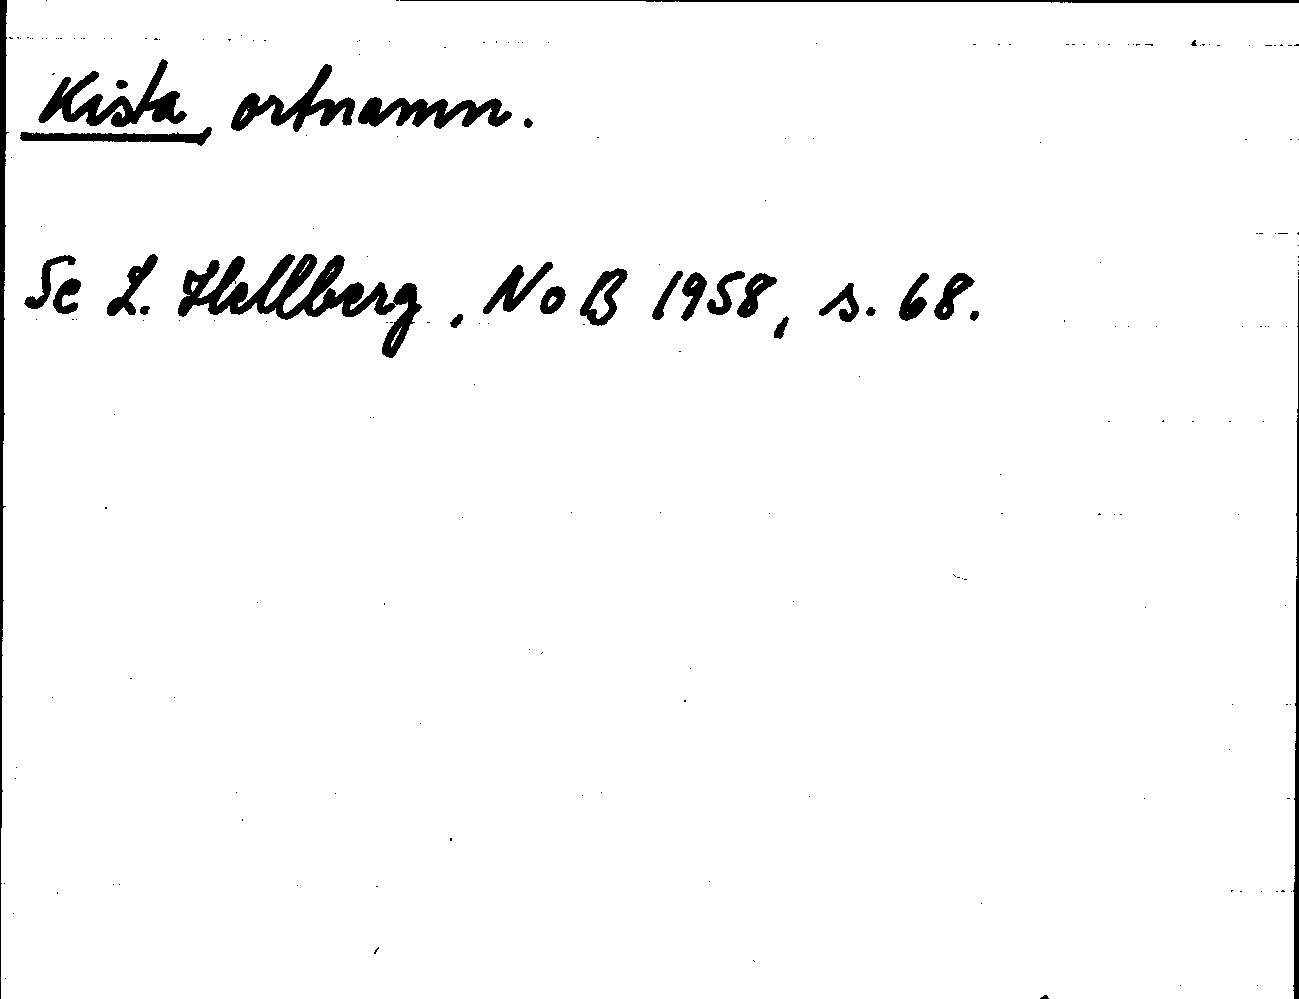 Kista, ortnamn.
Se L. Hellberg, NoB 1958, s. 68.